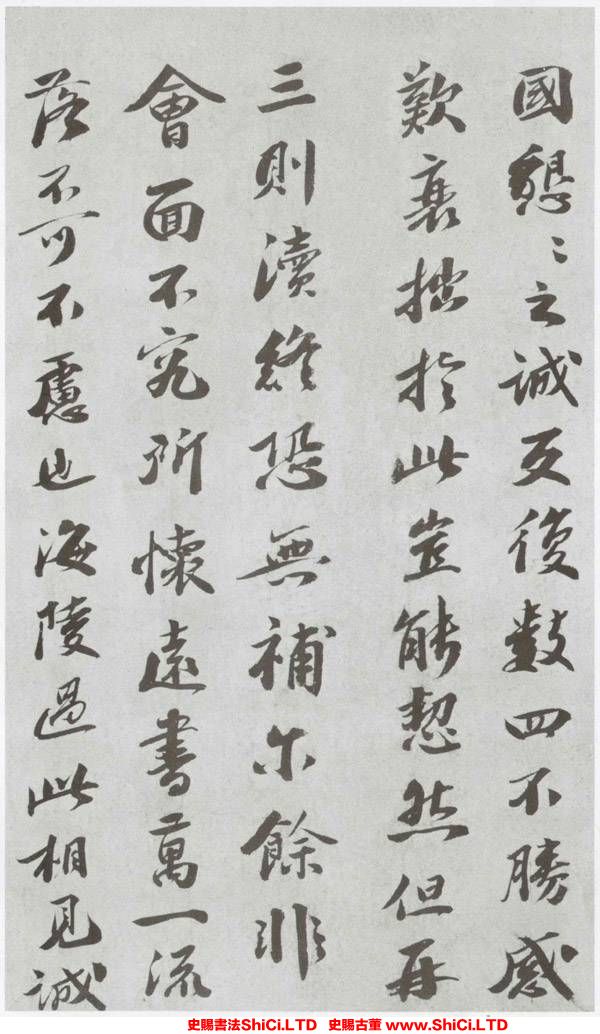 國懇〻之誠反復數四不勝感
歎衰拙於此豈能恝然但再
三則瀆終恐無補尔餘非
會面不究所懷遠書萬一流
落不可不慮也海陵過此相見誠
史賜書法ShiCi.LTD 史賜古董 www.ShiCi.LTD